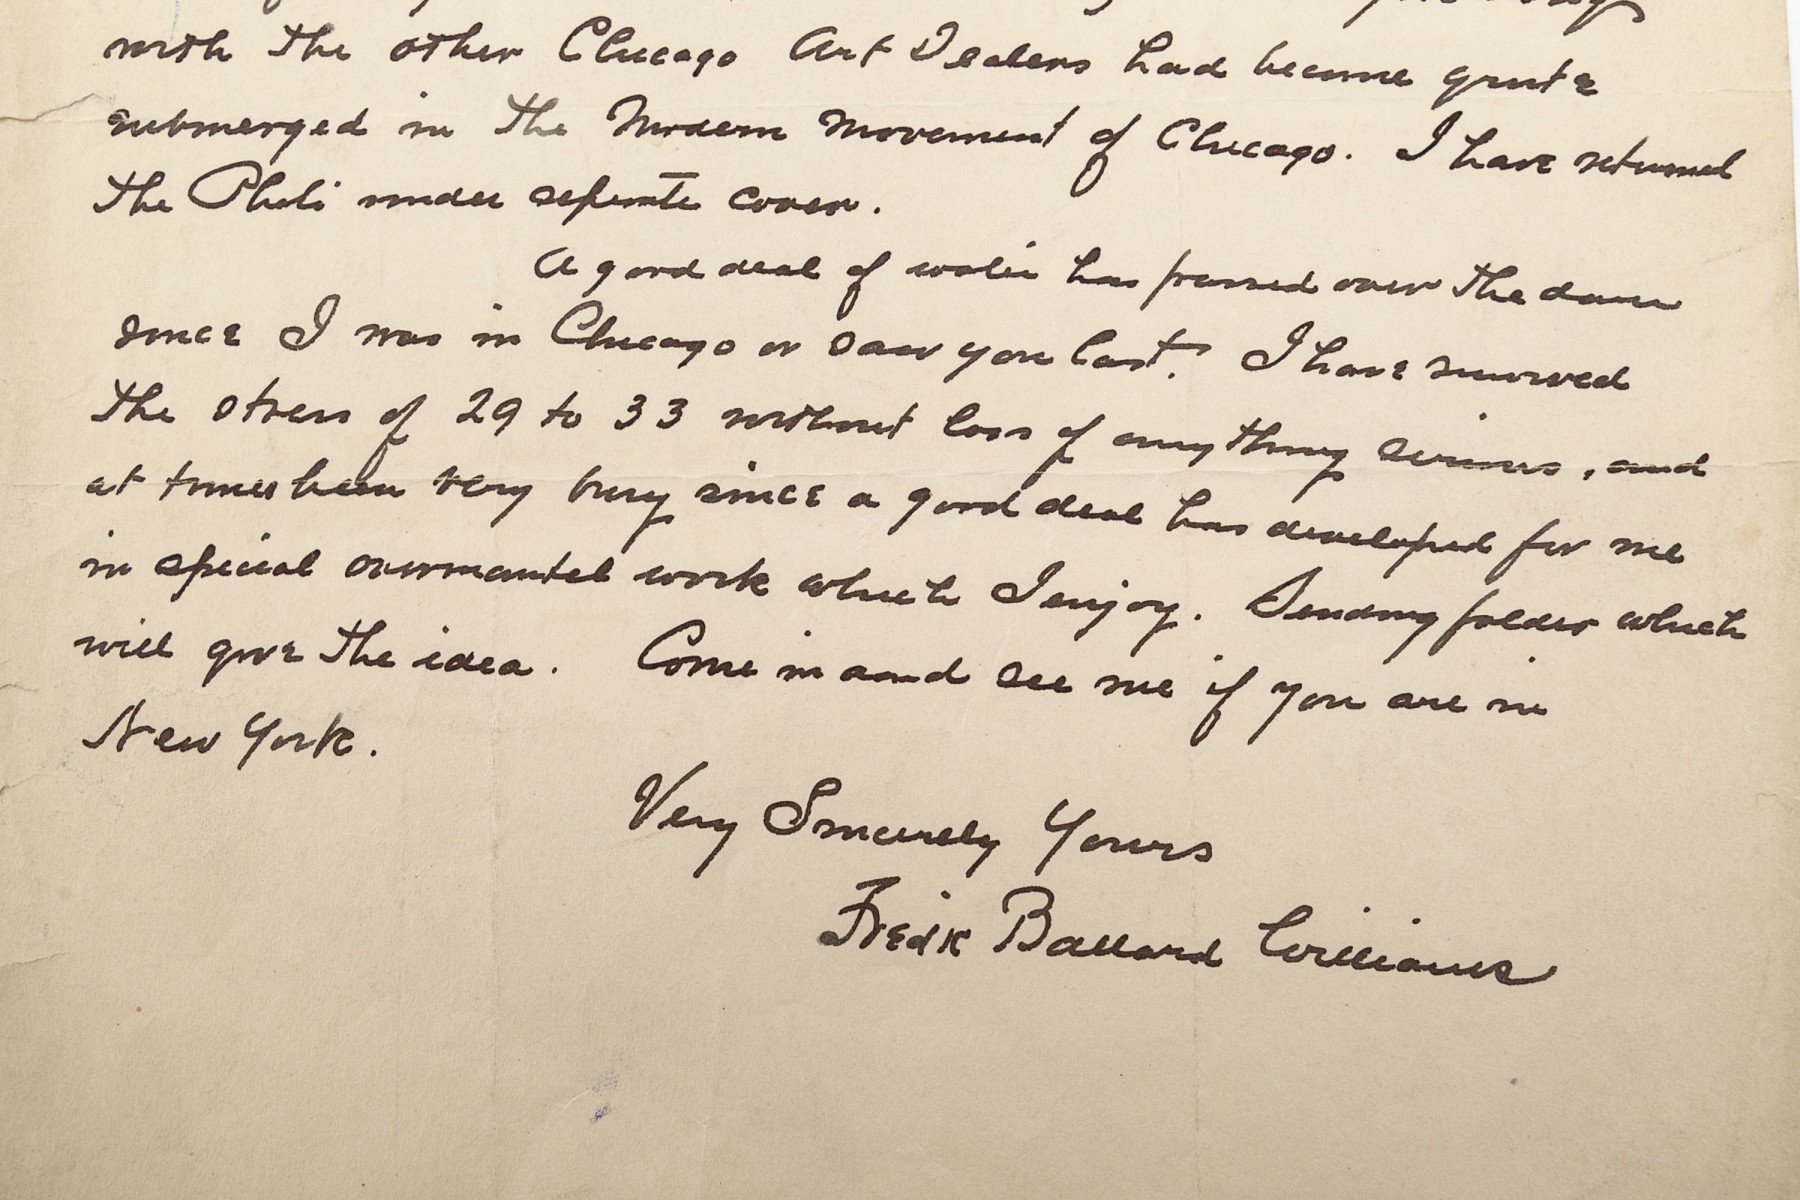 with the other Chicago Art Dealers had become quite
submerged in the Modern movement of Chicago. I have returned
the Photo under seperate cover.
A good deal of water has passed over the dam
since I was in Chicago or saw you last. I have survived
the stress of 29 to 33 without loss of anything serious, and
at times been very busy since a good deal has developed for me
in special overmantel work which I enjoy. Sending folder which
will give the idea. Come in and see me if you are in
New York.
Very Sincerely Yours
Fredk Ballard Williams